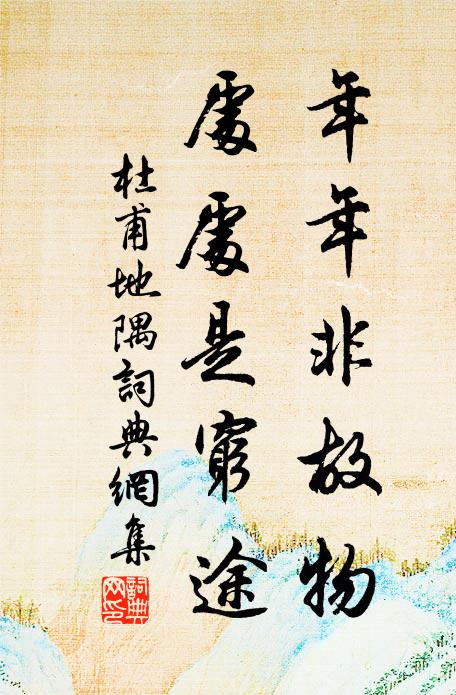 年年非故物
處處是窮途
杜甫地隅詞典網集